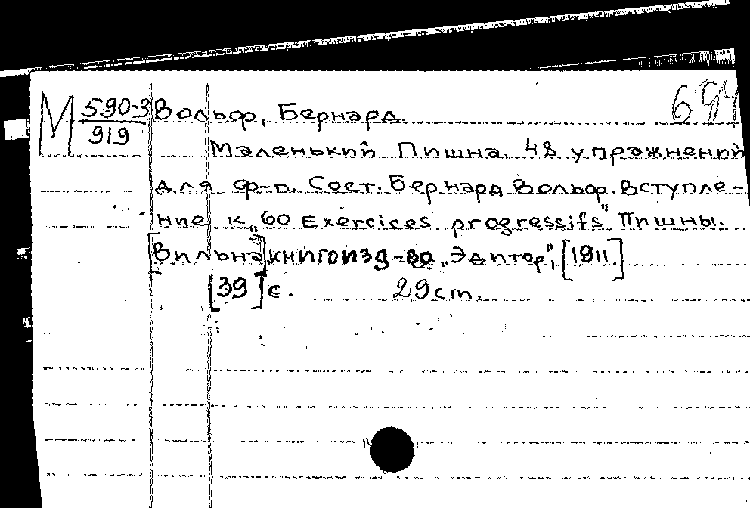 М 590-3/919 Вольф, Бернард. 694
Маленький Пишна. 48 упражнений
для ф-п. Сост. Бернард Вольф. Вступле-
ние к „60 Exercices progressifs" Пишны.
[Вильна] книгоизд-во „Эдитор", [1911.]
[39] с. 29 cm.